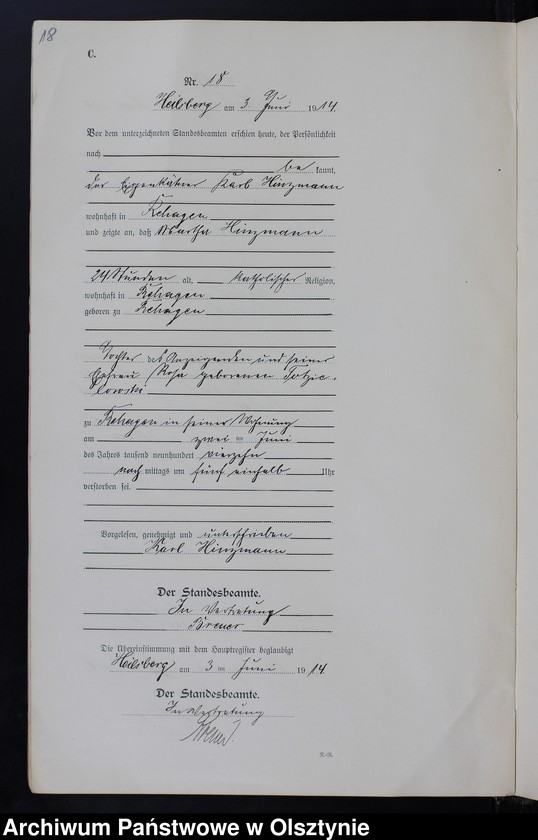 18
C.
Nr. 18
Heilsberg am 3 Juni 1914.
Vor dem unterzeichneten Standesbeamten erschien heute, der Persönlichkeit
nach
be kannt,
der Eigenkätner Karl Hinzmann
wohnhaft in Rehagen
und zeigte an, daß Martha Hinzmann
24 Stunden alt, katholischer Religion,
wohnhaft in Rehagen
geboren zu Rehagen
Tochter des Anzeigenden und seiner
Ehefrau Rosa geborenen
zu Rehagen in seiner Wohnung
am zwei ten Juni
des Jahres tausend neunhundert vierzehn
nach mittags um fünf einhalb Uhr
verstorben sei.
Vorgelesen, genehmigt und unterschrieben
Karl Hinzmann
Der Standesbeamte.
In Vertretung
Die Übereinstimmung mit dem Hauptregister beglaubigt
Heilsberg am 3 ten Juni 1914.
Der Standesbeamte.
In Vertretung
Archiwum Państwowe w Olsztynie